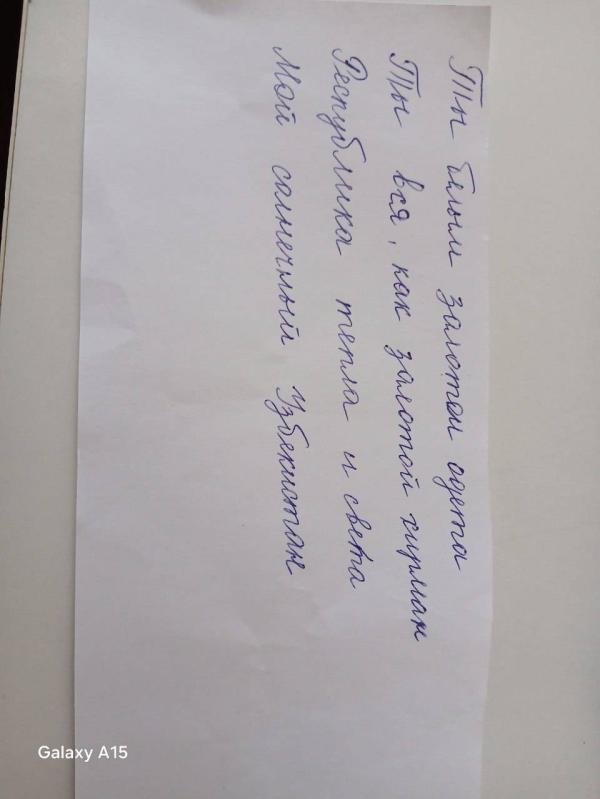 Ты белым золотом одета
Ты вся, как золотой хирман
Республика тепла и света
Мой солнечный Узбекистан
Galaxy A15